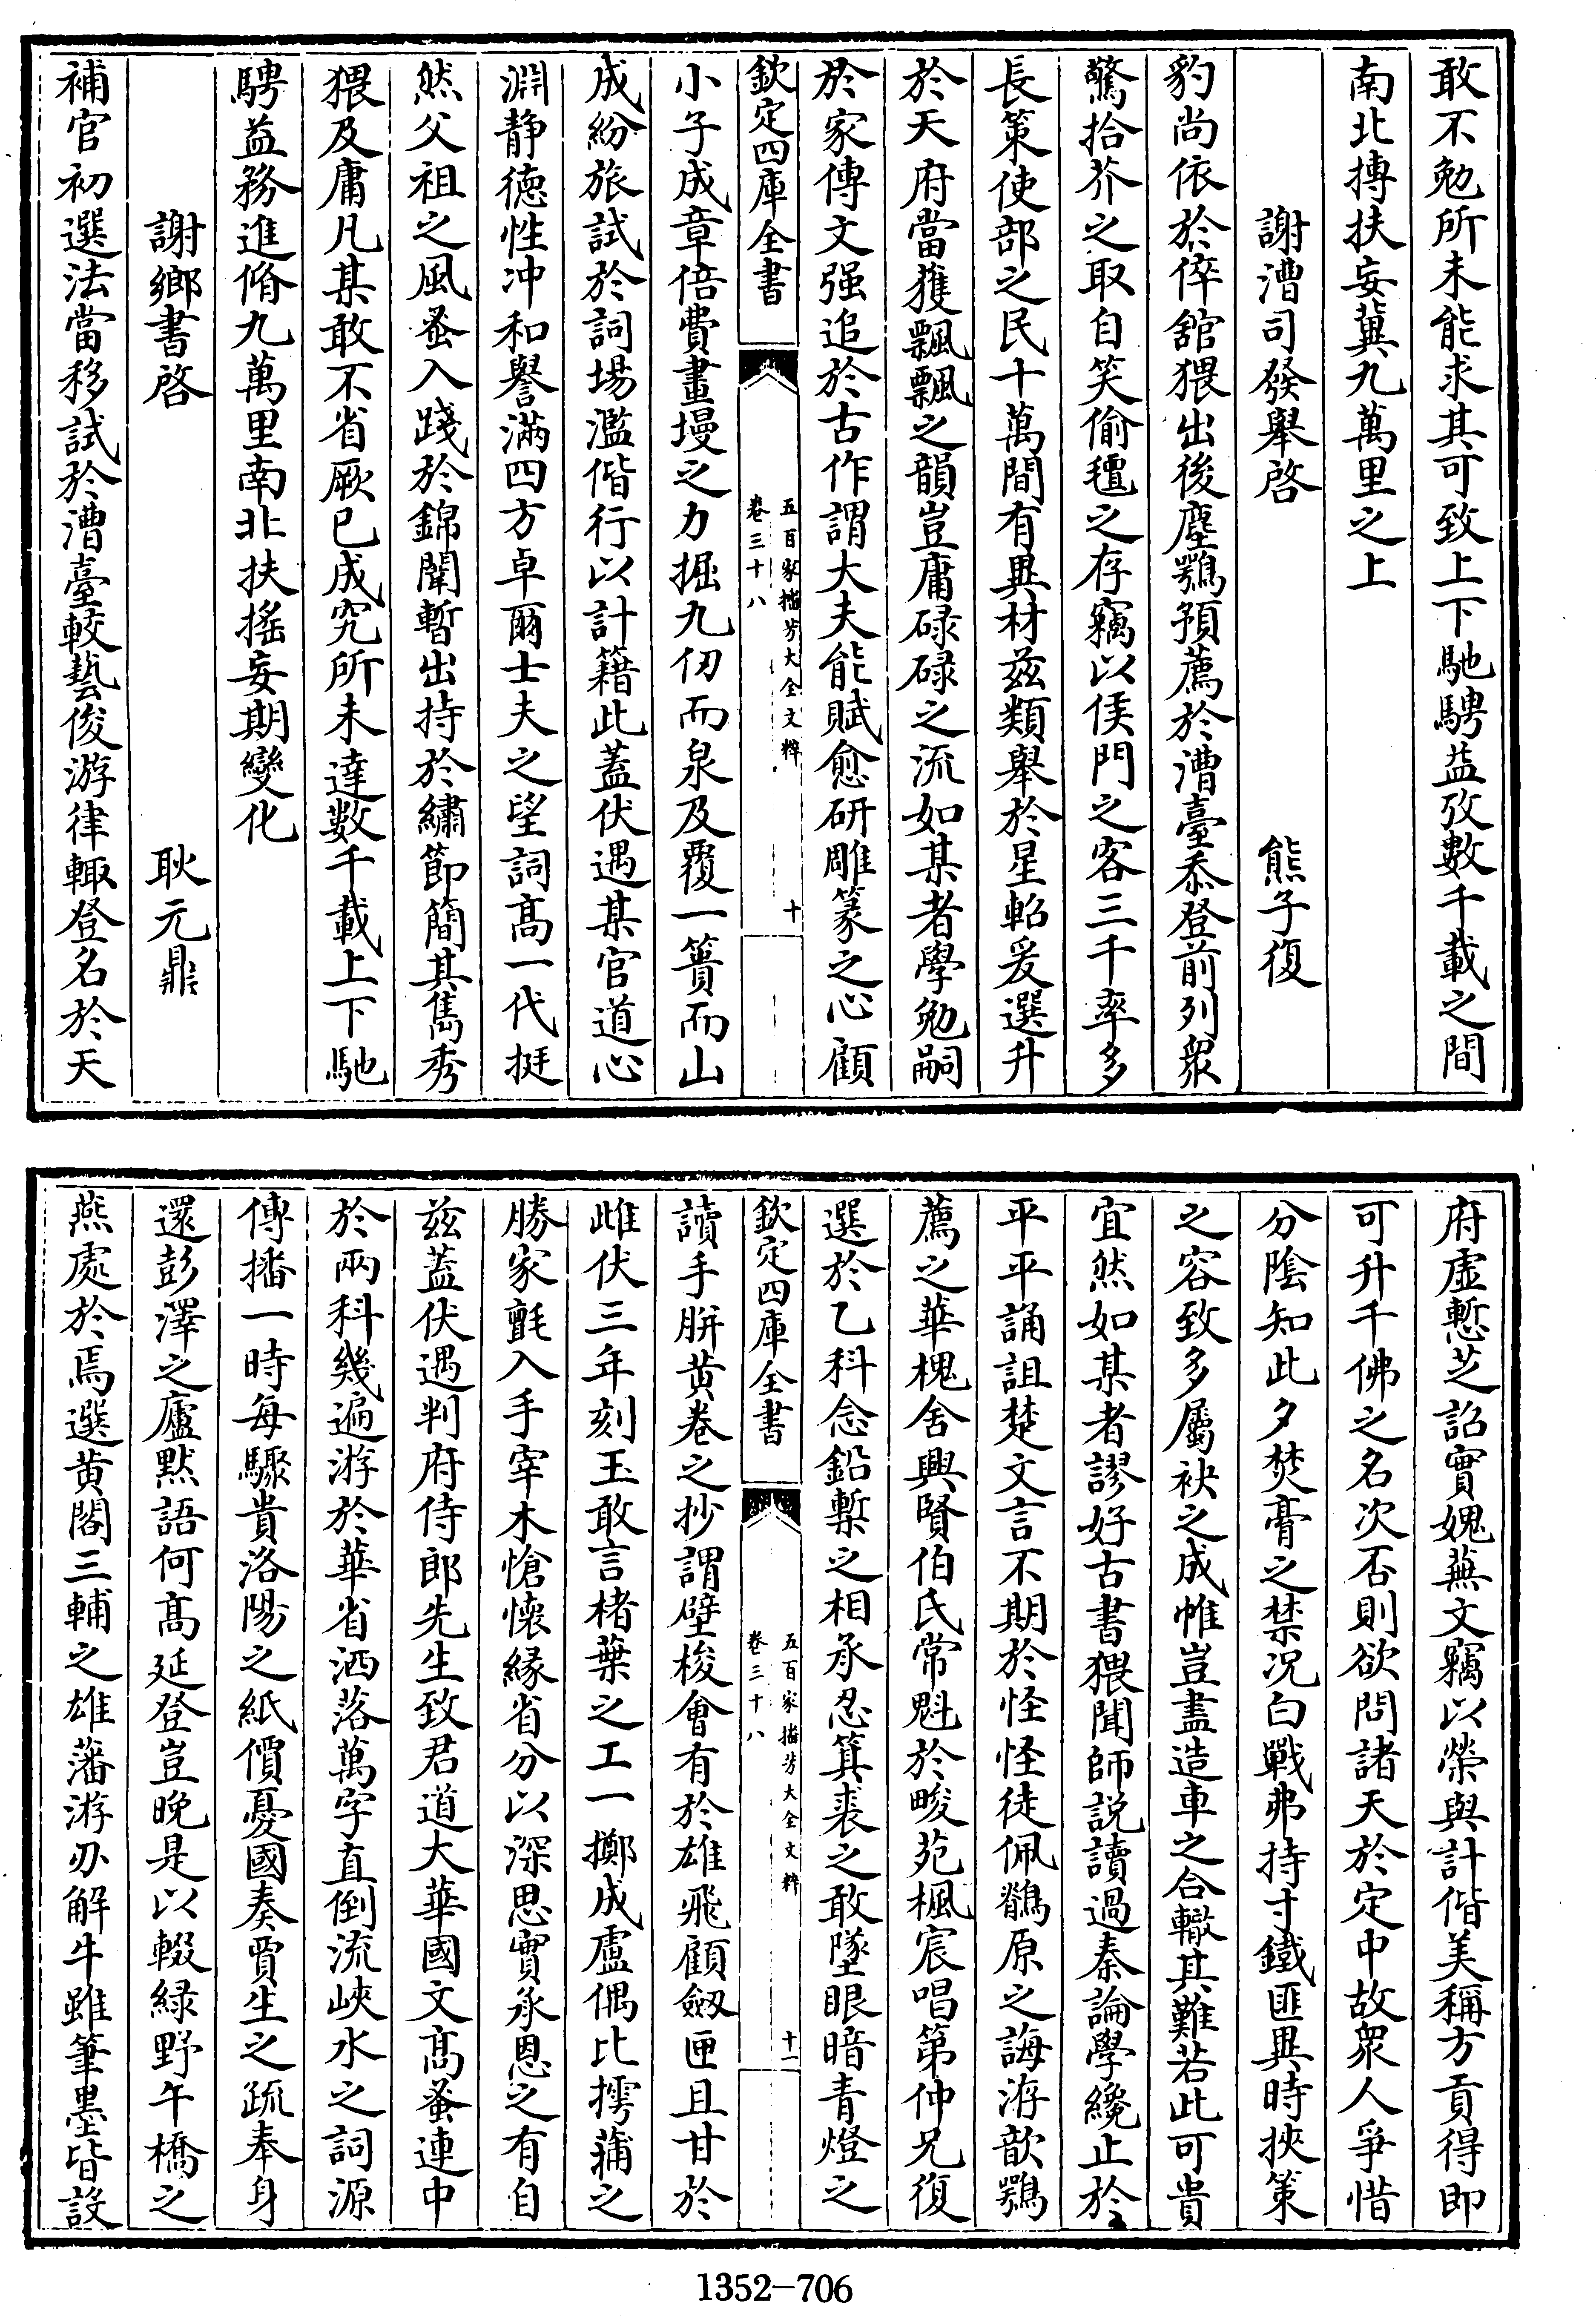 敢不勉所未能求其可致上下馳騁益攷數千載之間
南北摶扶妄冀九萬里之上
謝漕司發舉啓　熊子復
豹尚依於倅舘猥出後塵鶚預薦於漕臺忝登前列衆
驚拾芥之取自笑偷氊之存竊以侯門之客三千率多
長策使部之民十萬間有異材兹類舉於星軺爰選升
於天府當獲飄飄之韻豈庸碌碌之流如某者學勉嗣
於家傳文强追於古作謂大夫能賦愈研雕篆之心顧
欽定四庫全書
五百家播芳大全文粹
卷三十八
十
小子成章倍費畫墁之力掘九仞而泉及覆一簣而山
成紛旅試於詞場濫偕行以計籍此蓋伏遇某官道心
淵静徳性冲和譽滿四方卓爾士夫之望詞髙一代挺
然父祖之風蚤入踐於錦闈暫出持於繡節簡其雋秀
猥及庸凡某敢不省厥已成究所未達數千載上下馳
騁益務進脩九萬里南北扶搖妄期變化
謝鄉書啓　耿元鼎
補官初選法當移試於漕臺較藝俊游律輙登名於天
府虚慙芝詔實媿蕪文竊以榮與計偕美稱方貢得即
可升千佛之名次否則欲問諸天於定中故衆人爭惜
分陰知此夕焚膏之禁况白戰弗持寸鐵匪異時挾策
之容致多屬袂之成帷豈盡造車之合轍其難若此可貴
宜然如某者謬好古書猥聞師説讀過秦論學纔止於
平平誦詛楚文言不期於怪怪徒佩鶺原之誨洊歆鶚
薦之華槐舍興賢伯氏常魁於畯苑楓宸唱第仲兄復
選於乙科念鉛槧之相承忍箕裘之敢墜眼暗青燈之
欽定四庫全書
五百家播芳大全文粹
卷三十八
十一
讀手胼黄卷之抄謂壁梭會有於雄飛顧劒匣且甘於
雌伏三年刻玉敢言楮葉之工一擲成盧偶比摴蒱之
勝家氈入手宰木愴懐縁省分以深思實承恩之有自
兹蓋伏遇判府侍郎先生致君道大華國文髙蚤連中
於兩科幾遍游於華省洒落萬字直倒流峽水之詞源
傳播一時每驟貴洛陽之紙價憂國奏賈生之疏奉身
還彭澤之廬黙語何髙延登豈晚是以輟緑野午橋之
燕處於焉選黄閣三輔之雄藩游刃解牛雖筆墨皆設
1352-706